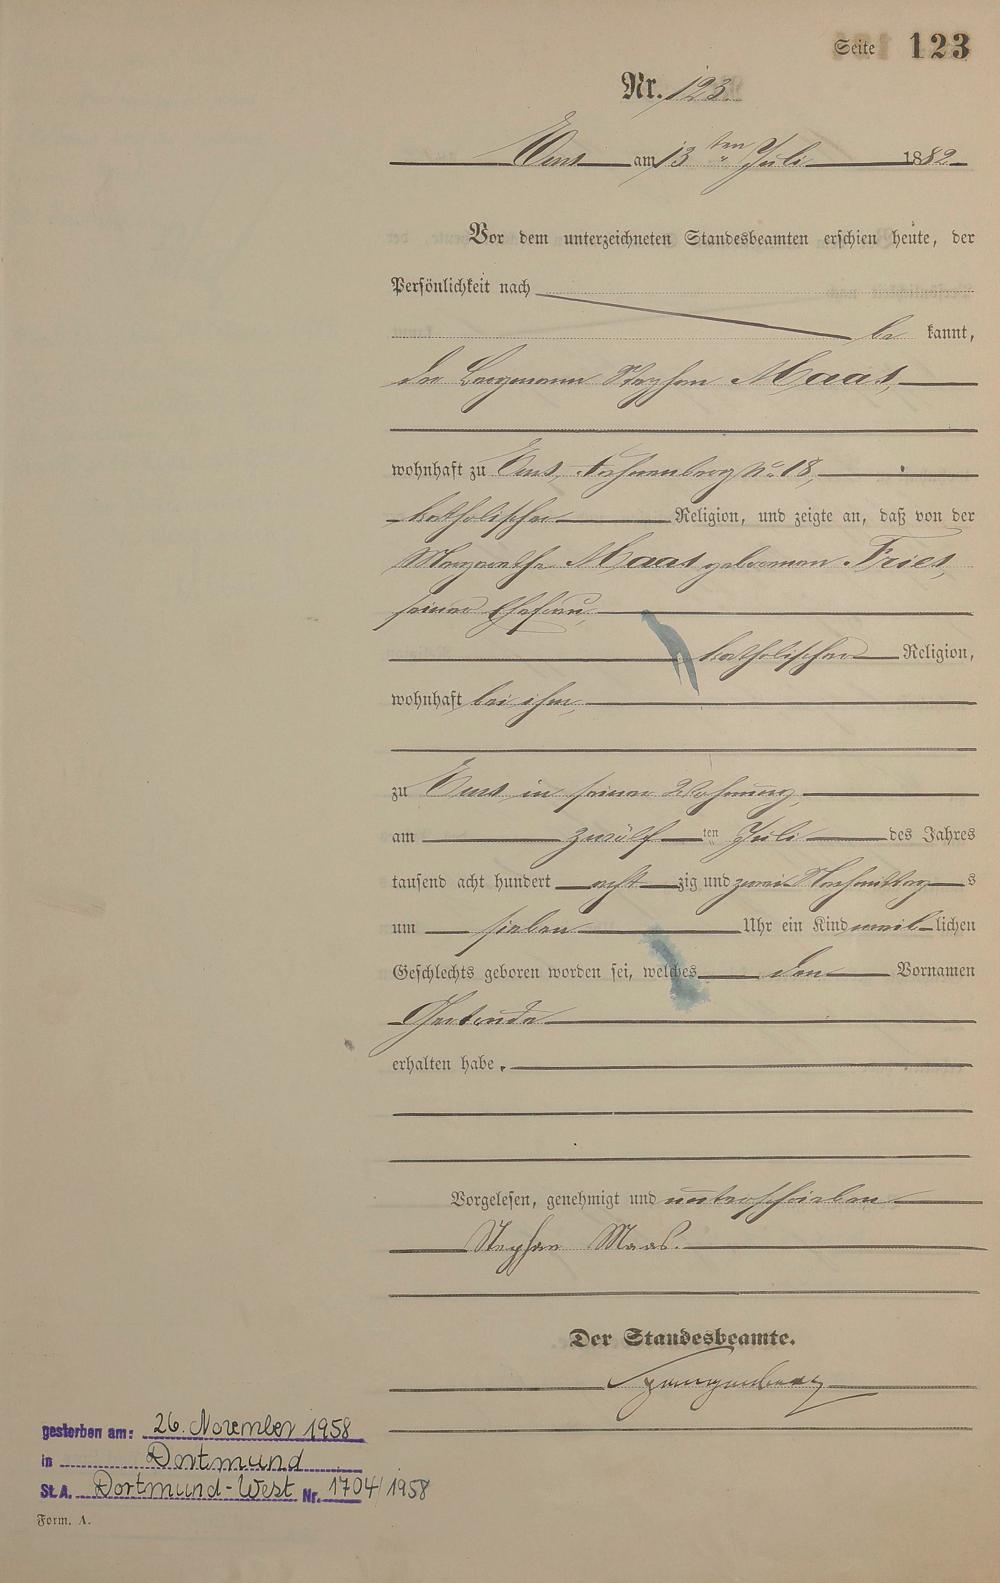 Seite 123
Nr. 123.
Ems am 13ten Juli 1882
Vor dem unterzeichneten Standesbeamten erschien heute, der
Persönlichkeit nach
be kannt,
der Bergmann Stephan Maas,
wohnhaft zu Ems, No 18,
katholischer Religion, und zeigte an, daß von der
Margarethe Maas geborenen Fries,
seiner Ehefrau,
katholischer Religion,
wohnhaft bei ihm,
zu Ems in seiner Wohnung,
am zwölf ten Juli des Jahres
tausend acht hundert acht zig und zwei Nachmittag s
um sieben Uhr ein Kind weib lichen
Geschlechts geboren worden sei, welches den Vornamen
erhalten habe.
Vorgelesen, genehmigt und unterschrieben
Stephan Maas.
Der Standesbeamte.
gestorben am: 26. November 1958
in Dortmund
St.A. Dortmund-West Nr. 1704/1958
Form. A.